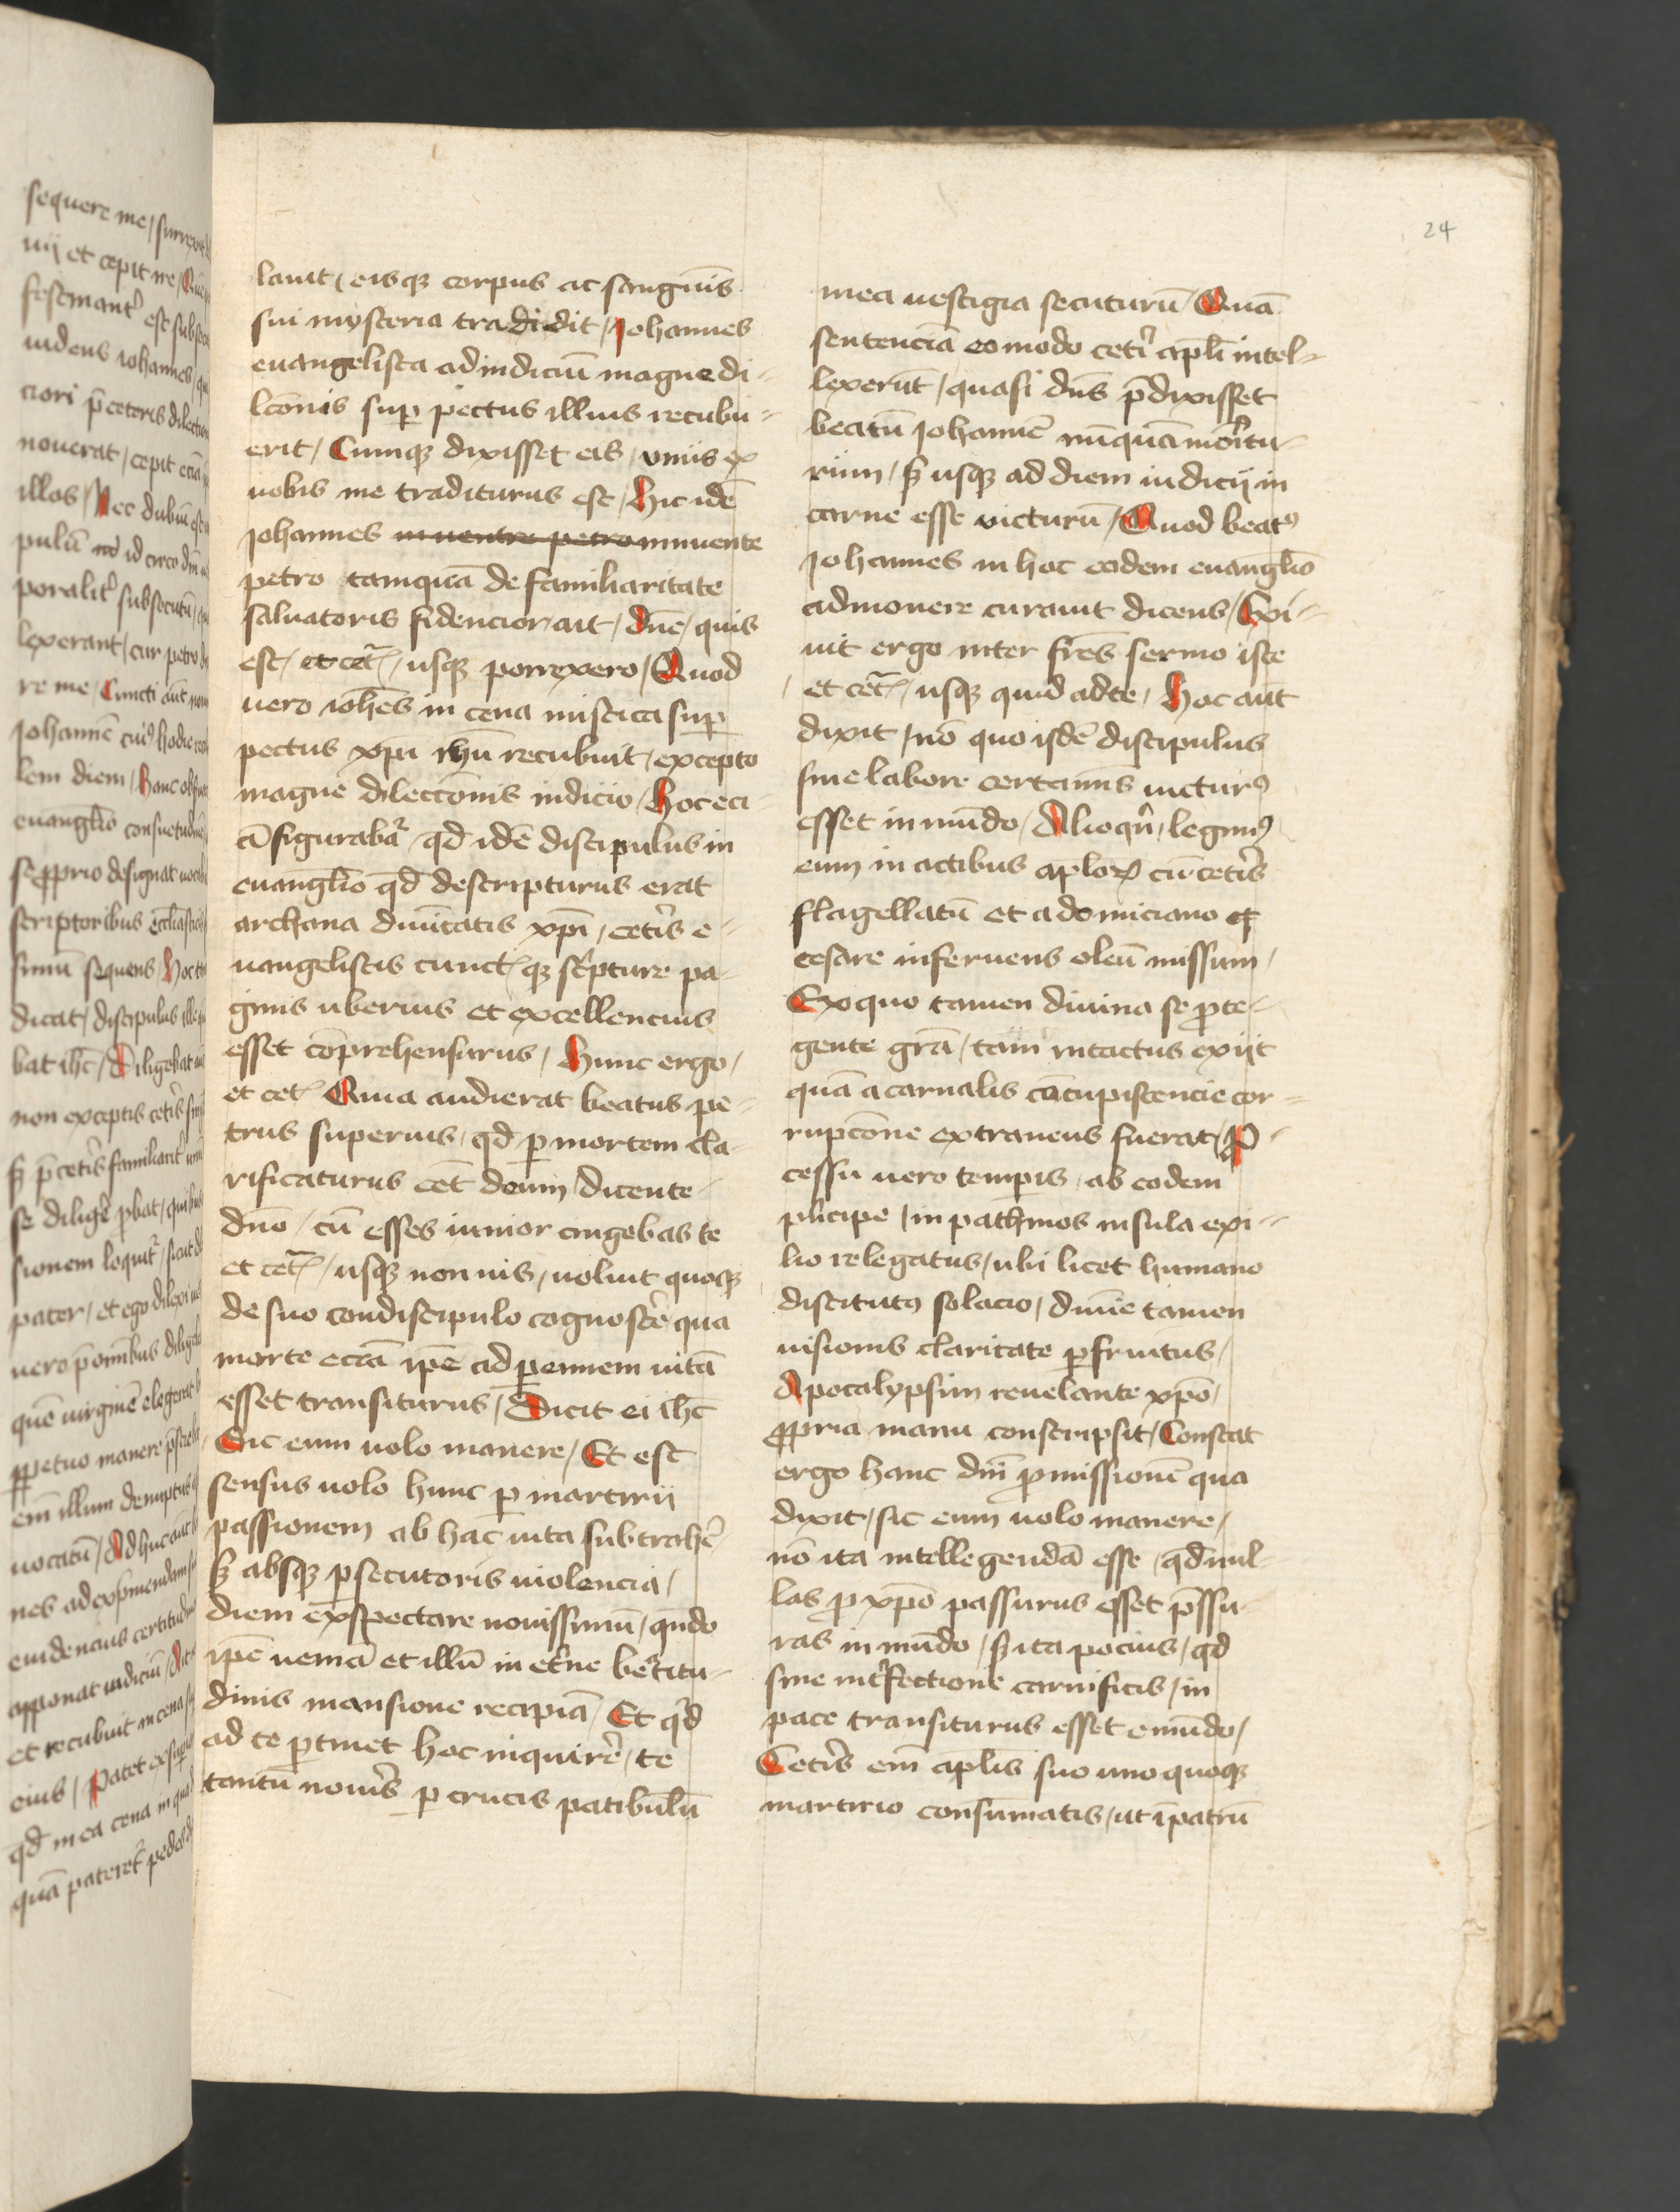 sequere me / surrexit
uij et cepit me /
festinant᷑ est subse
uidens iohannes / 
ciori p̄ ceteris dilection
nouerat / cepit eciā
illos / Nec dubiū est
pulū id circo dm̄
poralit᷑ subsecutū
lexerant / cur petro
re me / Cuncti aūt
Johannē cui⁹ hodie
lem diem / hanc
euangl̄io consuetudinē
se ꝓprio designat uoca
scriptoribus eccl̄iastici
simū sequens / hoc
dicat / discipulus ille
bat ih̄c / Diligebat
non exceptis cet̄is
sꝫ p̄ cet̄is familiarit᷑
se diliḡe ꝓbat / quibus
sionem loquit᷑ / sicut
pater / et ego dilexi uos
uero p̄ om̄ibus dilige
quē uirginē elegerat
ꝑpetuo manere
em̄ illum
uocatū / Ad huc aūt
nes ad exp̄mendam
euidencius certitud
apponat iudiciū /
et recubuit in cena
eius / Patet ex
qd̄ in ea cena in qua
quā pateret᷑ pedes
24
lauit / eisqꝫ corpus ac sanguīs
sui mysteria tradidit / Johannes
euangelista ad indiciū magne di-
lcōnis suꝑ pectus illius recubu-
erit / Cumqꝫ dixisset eis / vnus ex
uobis me traditurus est / Hic idē
Johannes inuentre petro innuente
petro tamquā de familiaritate
saluatoris fidencior ait / Dn̄e / quis
est / et cet᷑ / usqꝫ porrexero / Quod
uero ioh̄es in cena mistica suꝑ
pectus xp̄i ih̄u recubuit / excepto
magne dilectōnis indicio / Hoc eci-
ā figurabat᷑ / qd̄ idē discipulus in
euangl̄io qd̄ descripturus erat
archana diuīitatis xp̄i / cet̄is e-
uangelistis cunct᷑ qꝫ sc̄pture pa-
ginis uberius et excellencius
esset cōprehensurus / Hunc ergo /
et cet᷑ Quia audierat beatus pe-
trus superius / qd̄ ꝑ mortem cla-
rificaturus eēt deum / dicente
dn̄o / cū esses iunior cingebas te
et cet᷑ / usqꝫ non uis / uoluit quoqꝫ
de suo condiscipulo cognosc̄e qua
morte eciā ip̄e ad ꝑennem uitā
esset transiturus / Dicit ei ih̄c
Sic eum uolo manere / Et est
sensus uolo hunc ꝑ martirij
passionem ab hac uita subtrah̄e
sꝫ absqꝫ ꝑsecutoris uiolencia /
diem exspectare nouissimū / qn̄do
ip̄e ueniā et illū in et̄ne beatitu-
dinis mansione recipiā / Et qd̄
ad te ꝑtinet hoc inquir̄e / te
tantū noūis ꝑ crucis patibulū
mea uestigia secuturū / Quā
sentenciā eo modo cet̄i apl̄i intel-
lexerūt / quasi dn̄s p̄dixisset
beatū Johannē nūquā moritu-
rum / sꝫ usqꝫ ad diem iudicij in
carne esse victurū / Quod beat⁹
Johannes in hoc eodem euangl̄io
admonere curauit dicens / Exi-
uit ergo inter fr̄es sermo iste
et cet᷑ / usqꝫ quid ad te / Hoc aūt
dixit / nō quo isdē discipulus
sine labore certaminis uictur⁹
esset in mūdo / Alioqn̄ / legim⁹
eum in actibus apl̄oꝝ cū cet̄is
flagellatū et a domiciano
cesare in feruens oleū missum /
Ex quo tamen diuina se ꝓte-
gente grā / tam intactus exijt
quā a carnalis cōcupiscencie cor-
rupcōne extraneus fuerat / P-
cessu uero temꝑis / ab eodem
principe / in pathmos insula exi-
lio relegatus / ubi licet humano
distitut⁹ solacio / diuīe tamen
uisionis claritate ꝑfruitus /
Apocalypsim reuelante xp̄o /
ꝓpria manu conscripsit / Constat
ergo hanc dn̄i ꝓmissionē qua
dixit / sic eum uolo manere /
nō ita intellegendā esse / qd̄ nul-
las ꝓ xp̄o passurus esset p̄ssu-
ras in mūdo / sꝫ ita pocius / qd̄
sine int̄fectione carnificis / in
pace transiturus esset e mūdo /
Cet̄is em̄ apl̄is suo uno quoqꝫ
martirio consūmatis / ut ī patrū